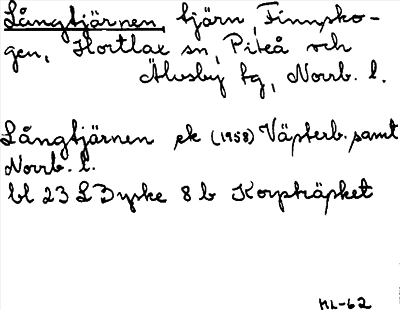 Långtjärnen, tjärn, Finnsko-
gen, Hortlax sn, Piteå och
Älvsby tg, Norrb. l.
Långtjärnen ek (1958) Västerb. samt
Norrb. l.
bl 23 L Byske 8 b Korsträsket
ML-62